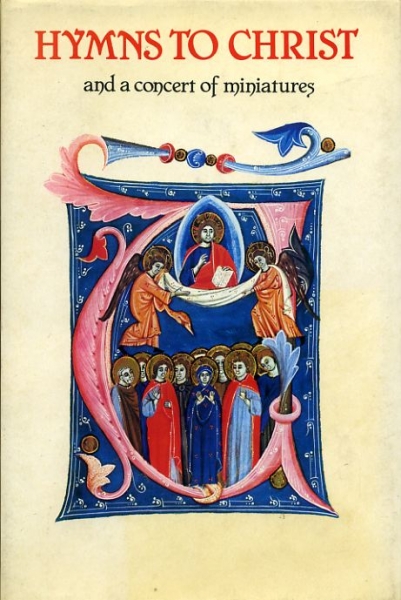 HYMNS TO CHRIST
and a concert of miniatures